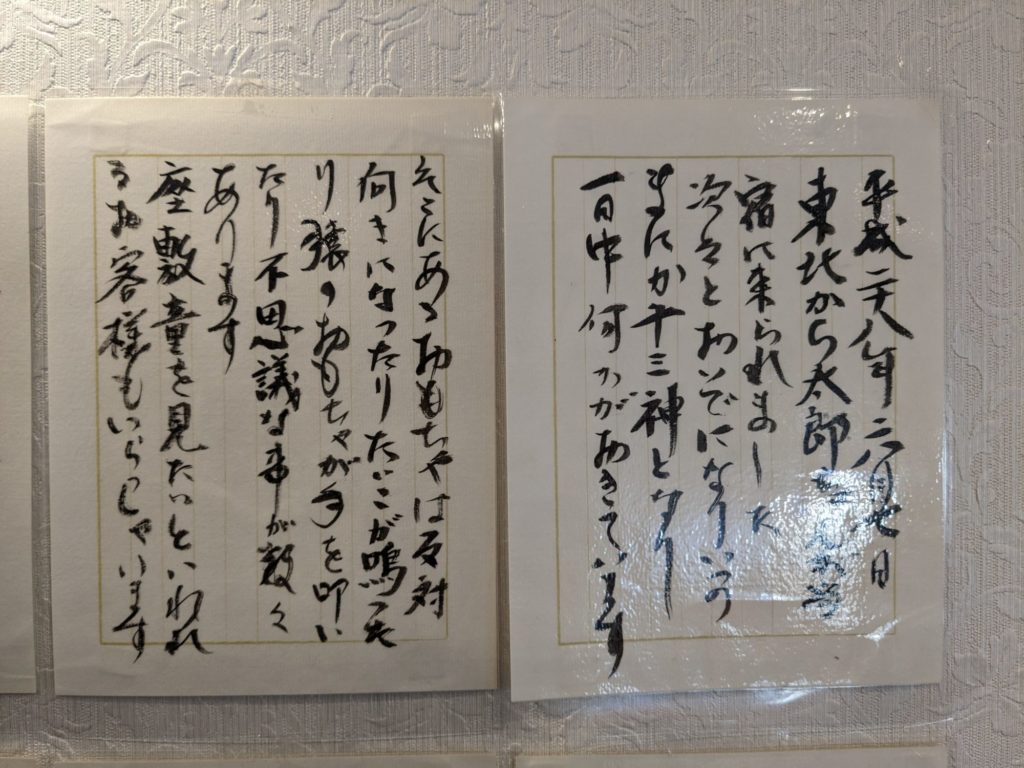 平成二十八年六月七日
東北から太郎
宿に来られました
次々とおいでになりいつの
まにか十三神となり
一日中何かがおきています
そこにあるおもちゃは反対
向きになったりたいこが鳴った
り猿のおもちゃが手を叩い
たり不思議な事が数々
あります
座敷童を見たいといわれ
るお客様もいらっしゃいます